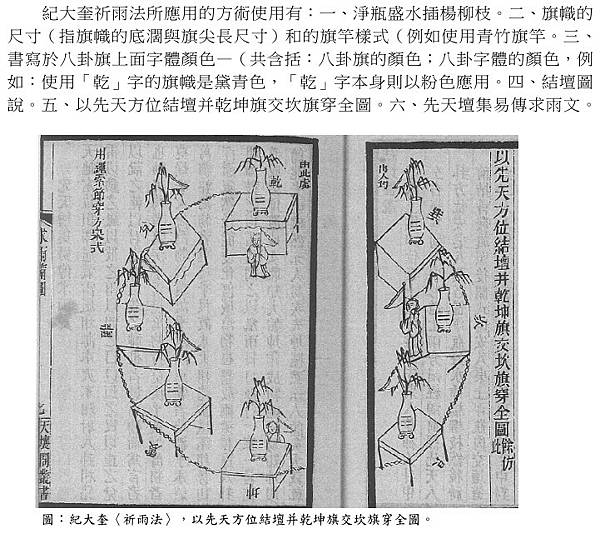 紀大奎祈雨法所應用的方術使用有：一、淨瓶盛水插楊柳枝。二、旗幟的
尺寸（指旗幟的底濶與旗尖長尺寸）和的旗竿樣式（例如使用青竹旗竿。三、
書寫於八卦旗上面字體顏色—（共含括：八卦旗的顏色；八卦字體的顏色，例
如：使用「乾」字的旗幟是黛青色，「乾」字本身則以粉色應用。四、結壇圖
說。五、以先天方位結壇并乾坤旗交坎旗穿全圖。六、先天壇集易傳求雨文。
以先天方位結壇并乾坤旗交坎旗穿全圖
餘仿此
坎
由此處
乾
坤
圖：紀大奎〈祈雨法〉，以先天方位結壇并乾坤旗交坎旗穿全圖。